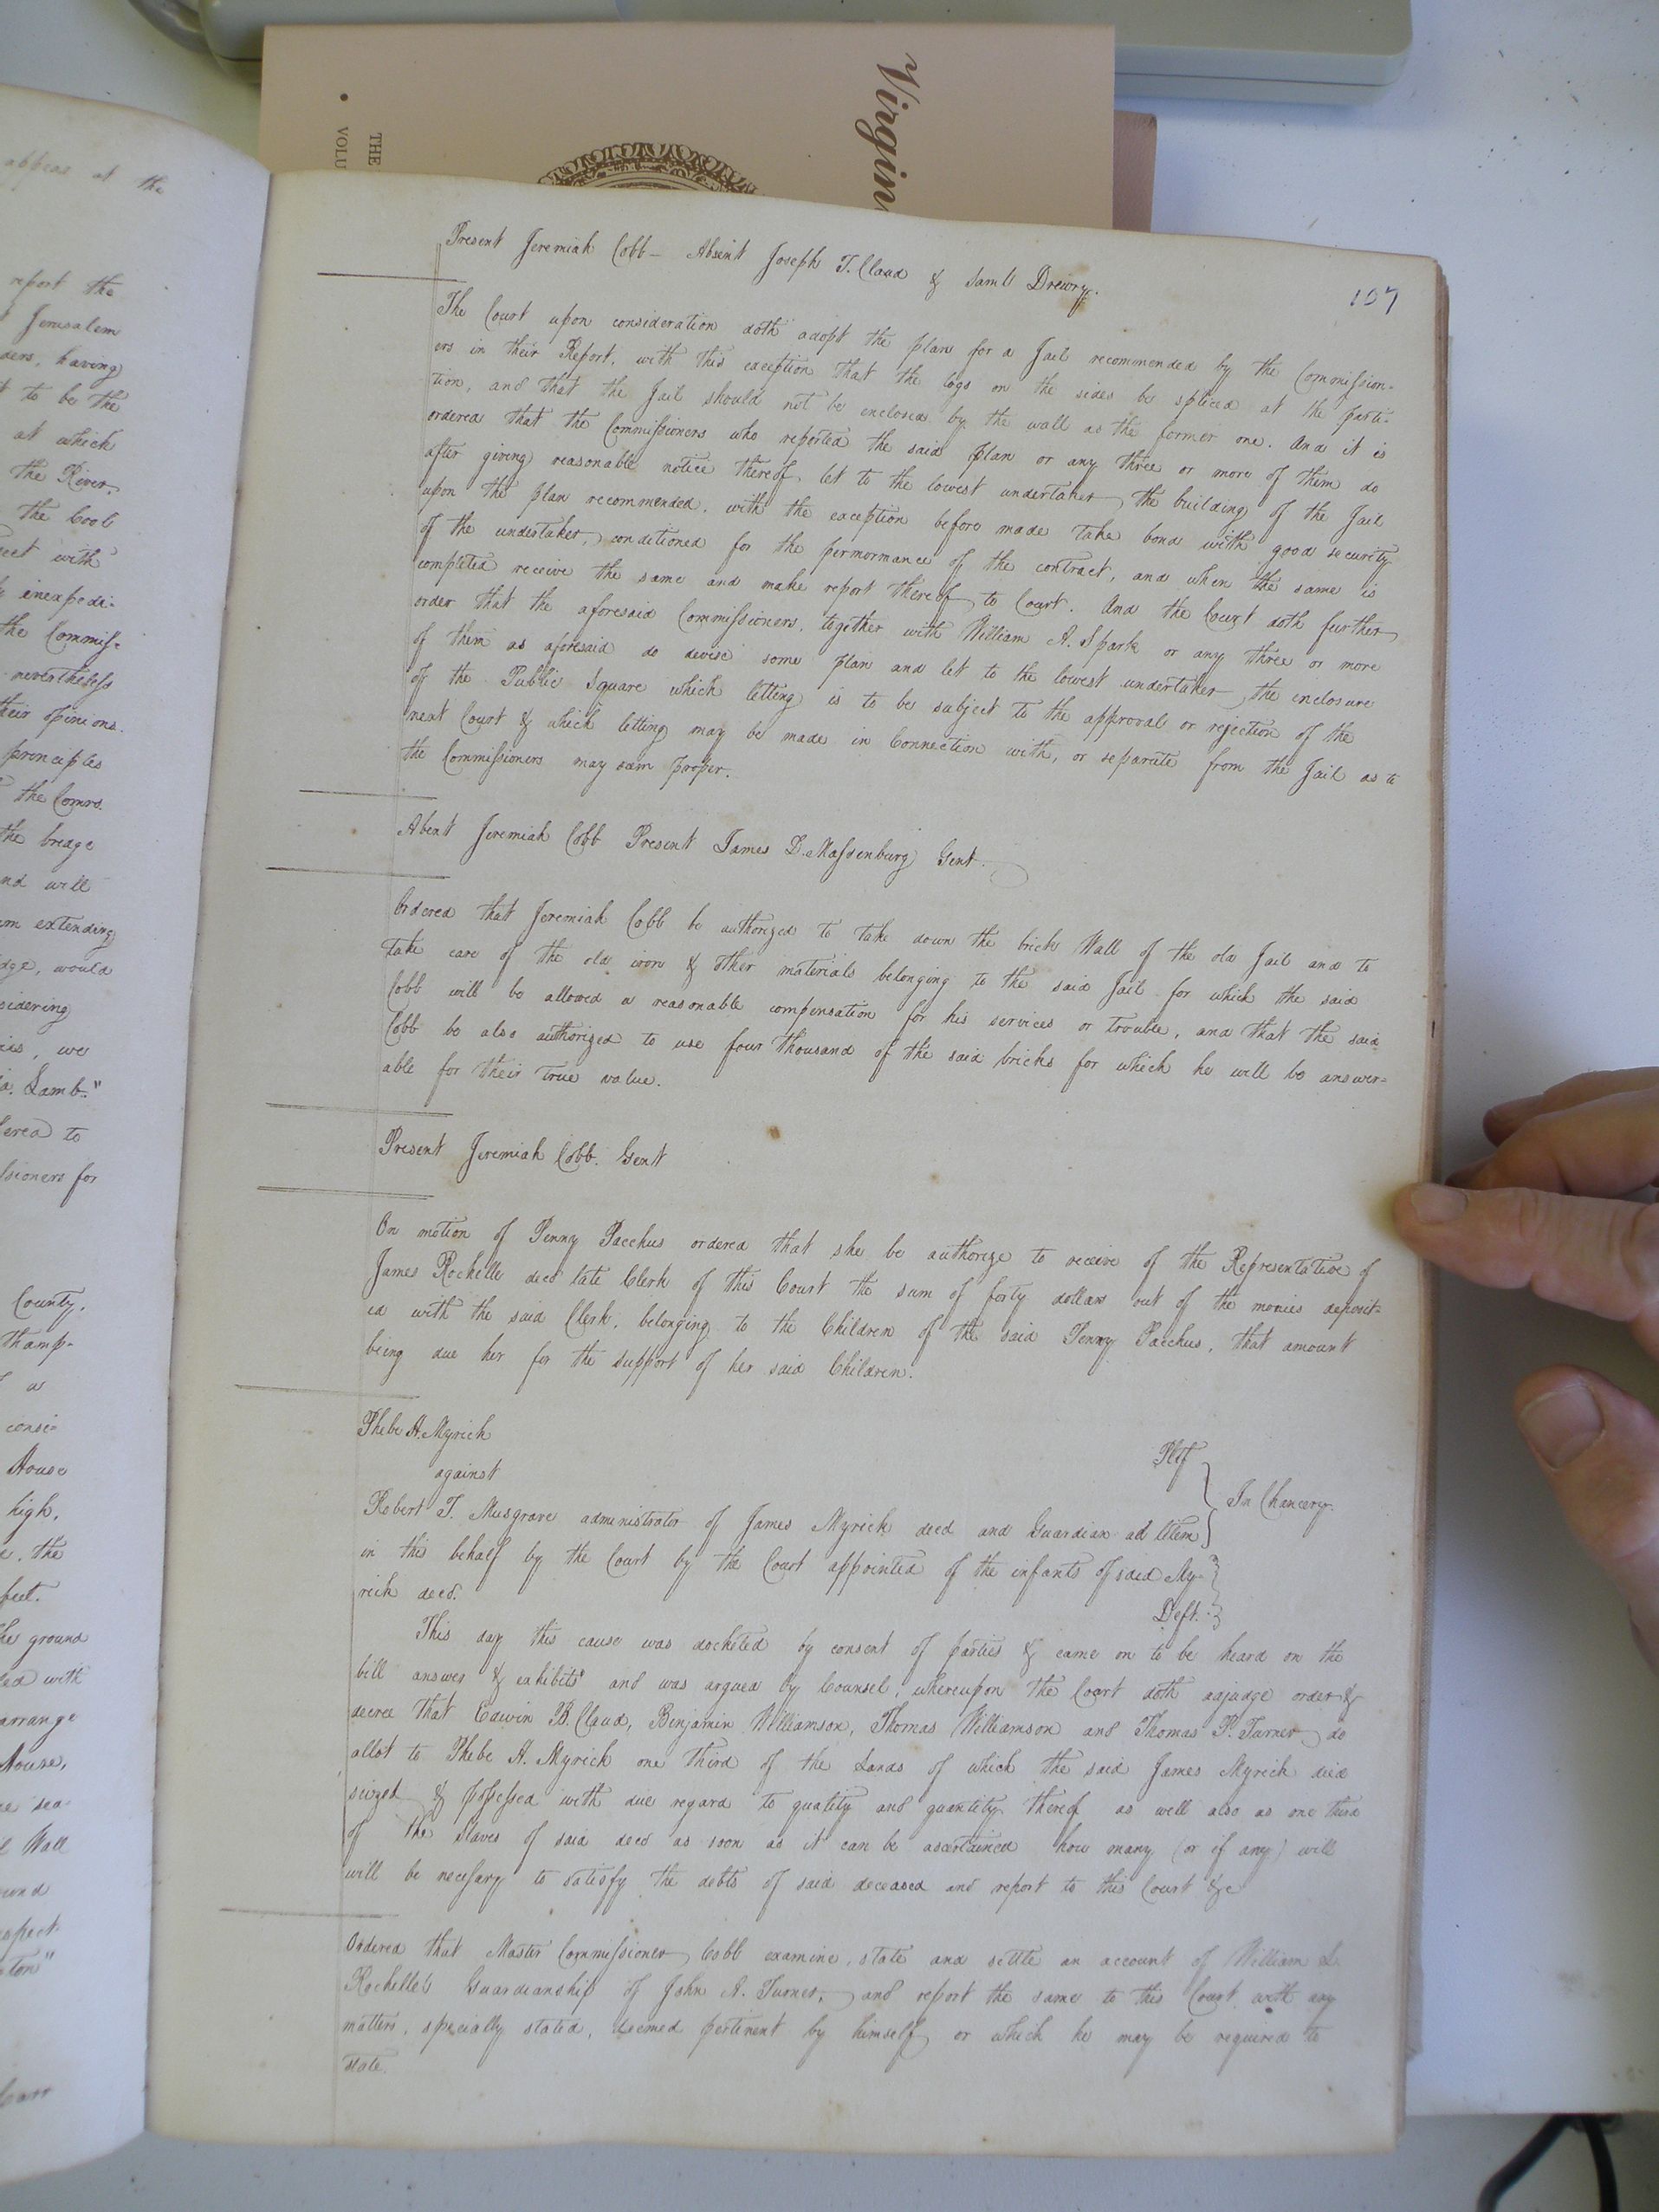 Virgin
THE
VOLU
appear at the
report the
Jerusalem
ders, having
t to be the
at which
the River,
the Cool
eet with
inexpedi-
the Commis-
nevertheless
their opinions.
principles
the Comrs.
the breage
nd will
m extending
dge, would
sidering
we
Lamb."
ered to
ssioners for
County.
thamp-
a
consi-
House
high,
the
feet.
he ground
ed with
arrange
House,
Wall
ound
spect-
ton"
107
Present Jeremiah Cobb – Absent Joseph T. Claud & Saml Drewry.
The Court upon consideration doth adopt the plan for a Jail recommended by the Commission-
ers in their Report, with this exception that the logs on the sides be spliced at the parti-
tion, and that the Jail should not be enclosed by the wall as the former one. And it is
ordered that the Commissioners who reported the said plan or any three or more of them do
after giving reasonable notice thereof, let to the lowest undertaker, the building of the Jail
upon the plan recommended, with the exception before made take bond with good security
of the undertaker, conditioned for the permormance of the contract, and when the same is
completed receive the same and make report thereof to Court. And the Court doth further
order that the aforesaid Commissioners, together with William A. Spark or any three or more
of them as aforesaid do devise some plan and let to the lowest undertaker, the enclosure
of the Public Square which letting is to be subject to the approval or rejection of the
next Court & which letting may be made in Connection with, or separate from the Jail as to
the Commissioners may seem proper.
Absent Jeremiah Cobb Present James D. Massenburg Gent.
Ordered that Jeremiah Cobb be authorized to take down the brick Wall of the old Jail and to
take care of the old iron & other materials belonging to the said Jail for which the said
Cobb will be allowed a reasonable compensation for his services or trouble, and that the said
Cobb be also authorized to use four thousand of the said bricks for which he will be answer-
able for their true value.
Present Jeremiah Cobb. Gent
On motion of Penny Pacchus ordered that she be authorize to receive of the Representative of
James Rochelle decd late Clerk of this Court the sum of forty dollars out of the monies deposit-
ed with the said Clerk, belonging to the Children of the said Penny Pacchus, that amount
being due her for the support of her said Children.
Phebe A. Myrick
Pltf
against
In Chancery.
Robert T. Musgrave administrator of James Myrick decd and Guardian ad litem
in this behalf by the Court by the Court appointed of the infants of said My-
rick decd.
Deft.
This day this cause was docketed by consent of parties & came on to be heard on the
bill answer & exhibits and was argued by Counsel, whereupon the Court doth adjudge order &
decree that Edwin B. Claud, Benjamin Williamson, Thomas Williamson and Thomas P. Turner do
allot to Phebe A. Myrick one third of the Lands of which the said James Myrick died
seized & possessed with due regard to quality and quantity thereof as well also as one third
of the Slaves of said decd as soon as it can be ascertained how many (or if any) will
will be necessary to satisfy the debts of said deceased and report to this Court &c
Ordered that Master Commissioner Cobb examine, state and settle an account of William L.
Rochelle's Guardianship of John A. Turner, and report the same to this Court with any
matters, specially stated, deemed pertinent by himself or which he may be required to
state.